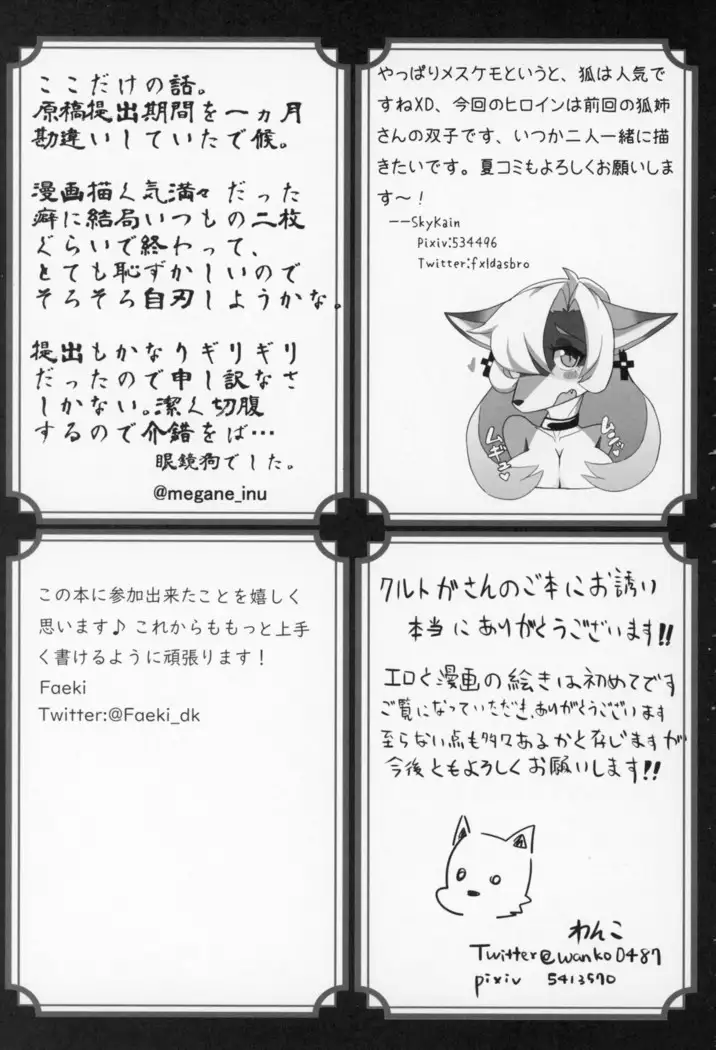 ここだけの話。
原稿提出期間を一ヵ月
勘違いしていたで候。
漫画描く気満々だった
癖に結局いつもの二枚
ぐらいで終わって、
とても恥ずかしいので
そろそろ自刃しようかな。
提出もかなりギリギリ
だったので申し訳なさ
しかない。潔く切腹
するので介錯をば…
眼鏡狗でした。
@megane_inu
やっぱりメスケモというと、狐は人気で
すねXD、今回のヒロインは前回の狐姉
さんの双子です、いつか二人一緒に描
きたいです。夏コミもよろしくお願いしま
す〜！
──SkyKain
Pixiv:534496
Twitter:fxldasbro
ムギュ
ムニュ
この本に参加出来たことを嬉しく
思います♪ これからももっと上手
く書けるように頑張ります！
Faeki
Twitter:@Faeki_dk
クルトガさんのご本にお誘い
本当にありがとうございます!!
エロと漫画の絵きは初めてです
ご覧になっていただき、ありがとうございます
至らない点も多々あるかと存じますが
今後ともよろしくお願いします!!
わんこ
Twitter@wanko0487
pixiv 5413570